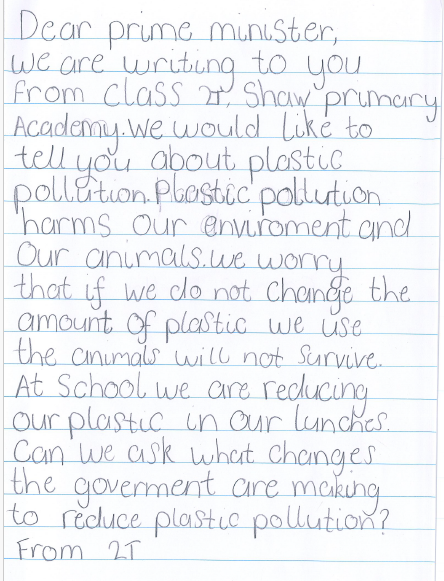 Dear prime minister,
we are writing to you
from class 2T, Shaw primary
Academy. We would like to
tell you about plastic
pollution. Plastic pollution
harms our enviroment and
Our animals. we worry
that if we do not change the
amount of plastic we use
the animals will not survive.
At School we are reducing
our plastic in our lunches.
Can we ask what changes
the goverment are making
to reduce plastic pollution?
From 2T